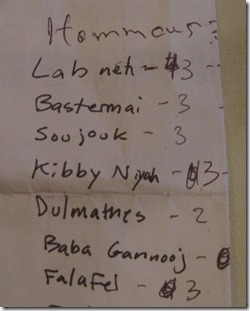 Hommous:
Labneh - 3 -
Bastermai - 3
Soujouk - 3
Kibby Niyah - 3 -
Dulmathes - 2
Baba Gannooj -
Falafel - 3